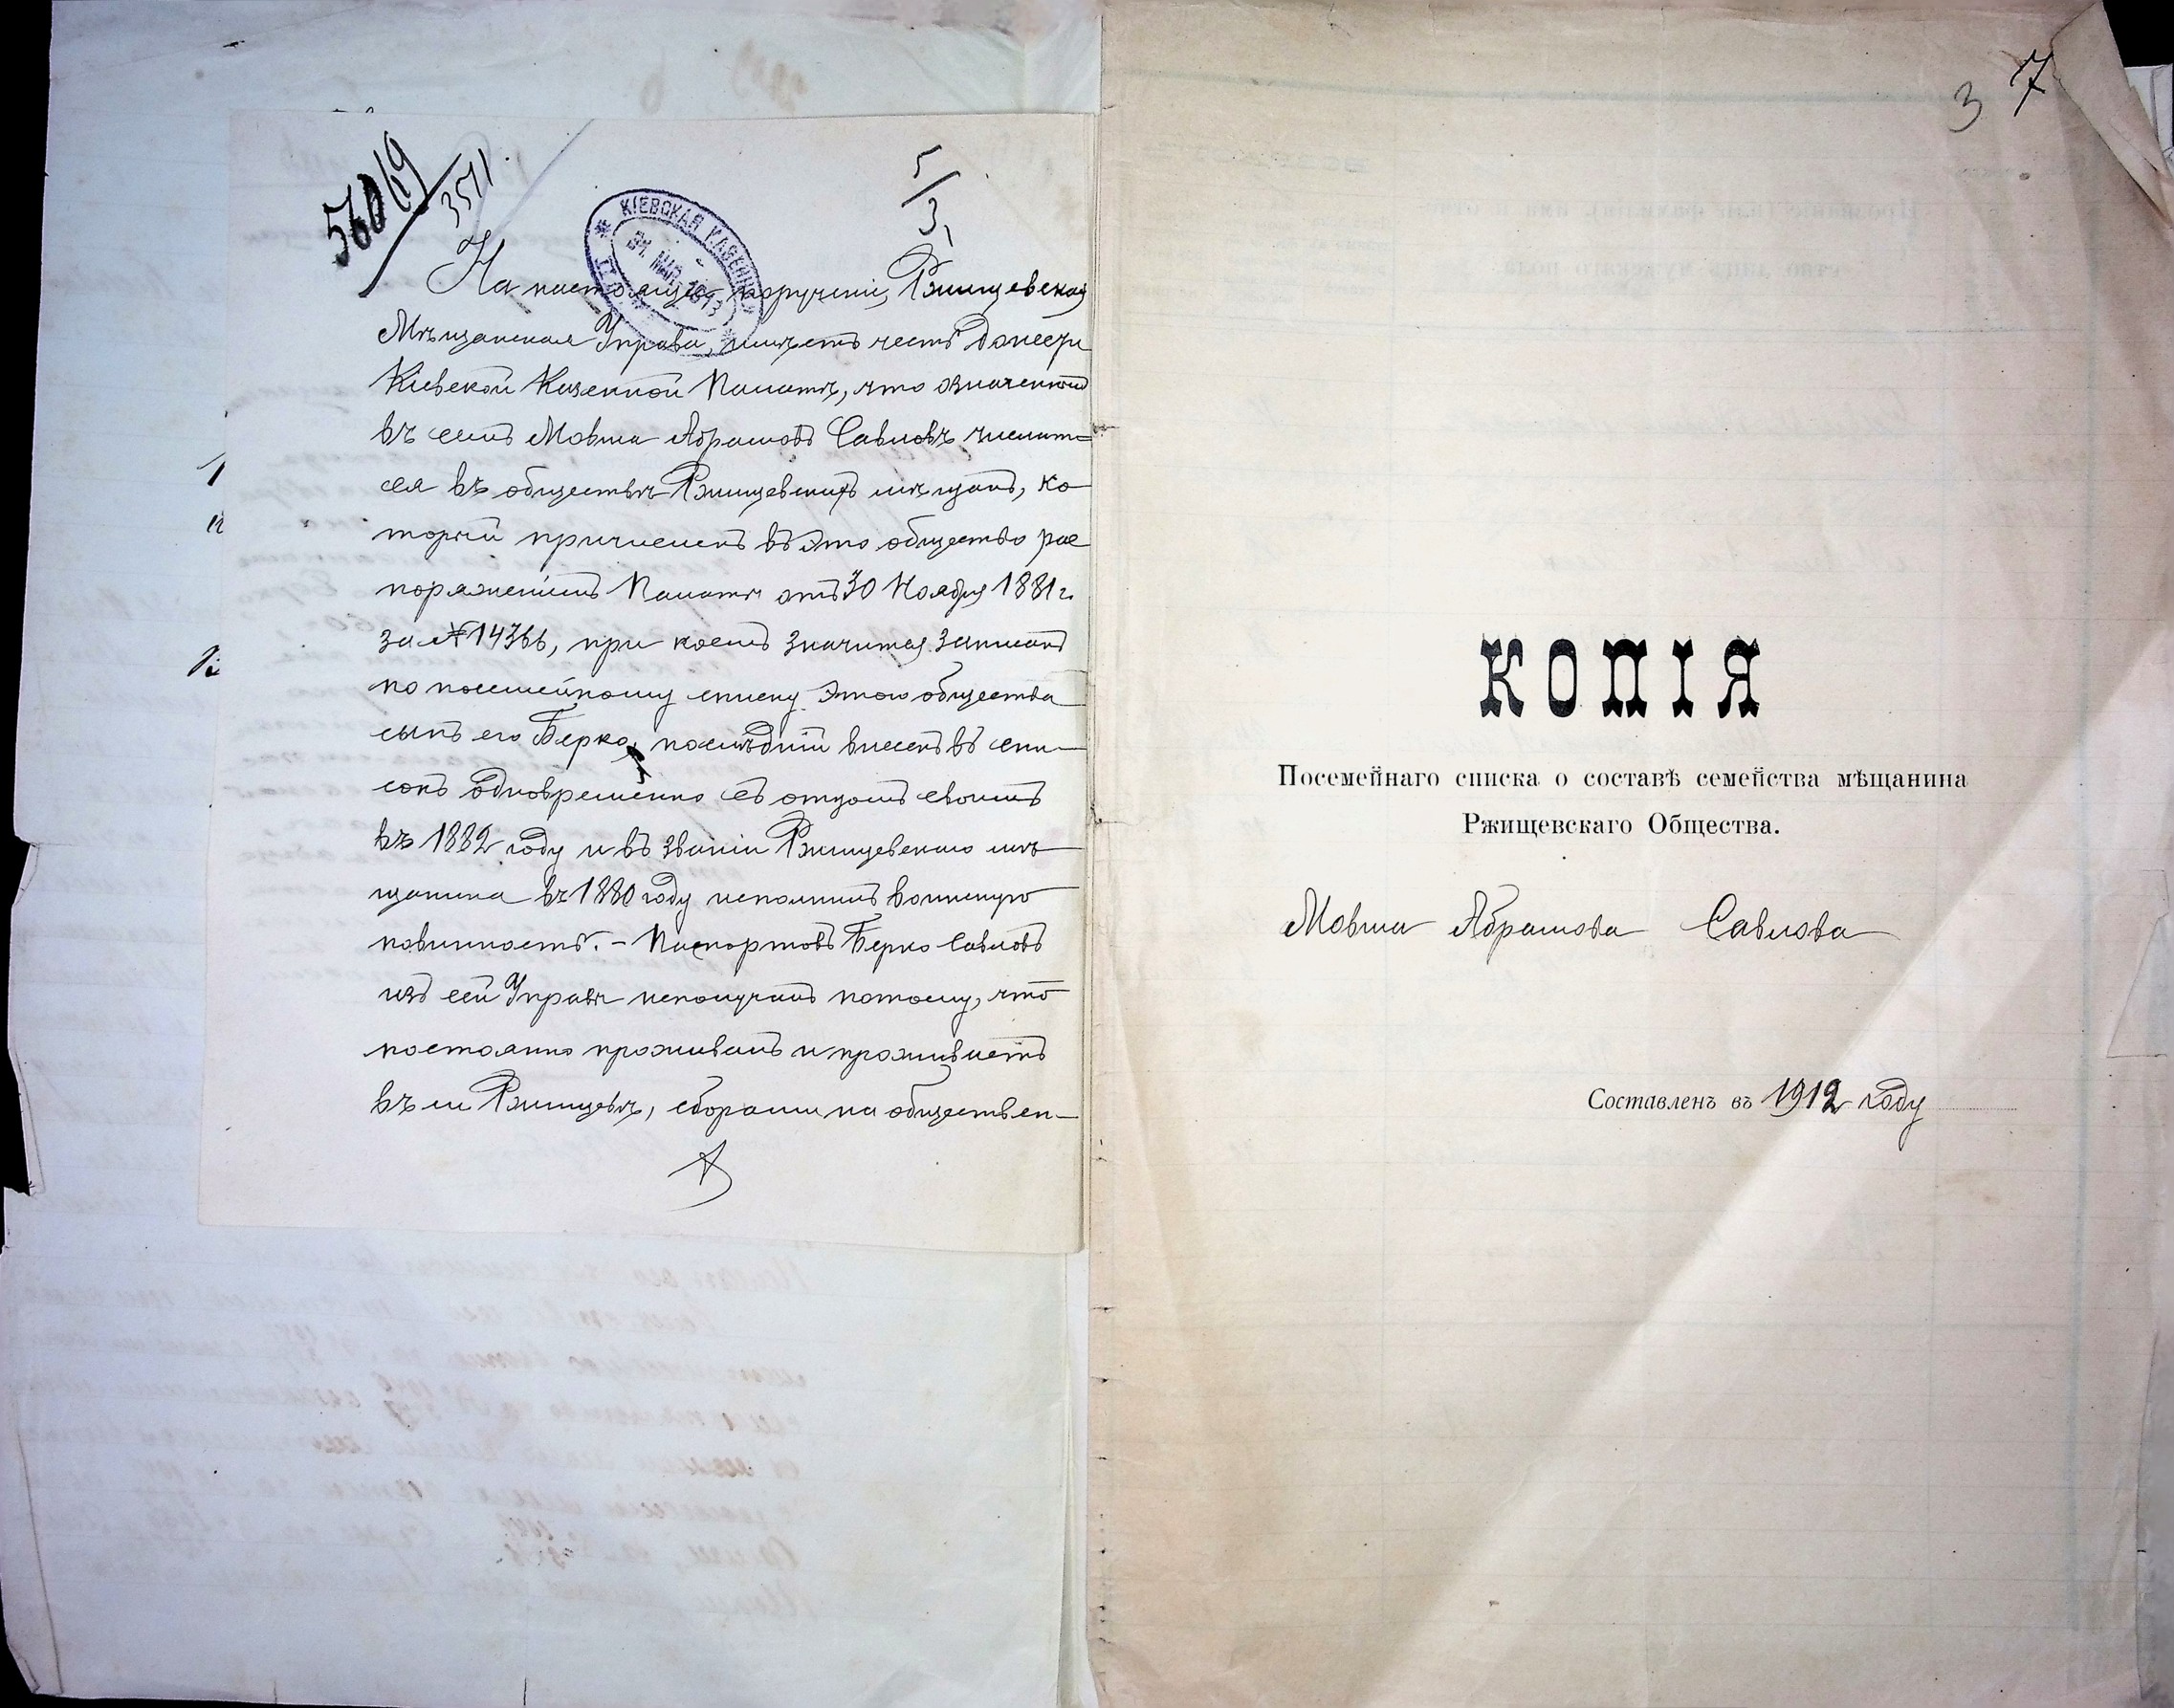 56019
3511.
5/3
КІЕВСКАЯ КАЗЕННАЯ
МАР. 1913
На настоящее порученіе, Ржищевская
Мѣщанская Управа, имѣетъ честь донести
Кіевской Казенной Палатѣ, что означенный
въ семъ Мовша Абрамовъ Савловъ числит=
ся въ обществѣ Ржищевскихъ мѣщанъ, ко
торый причисленъ въ это общество рас
поряженіемъ Палаты отъ 30 Ноября 1881 г.
за № 14366, при коемъ значится записанъ
по посемейному списку этого общества
сынъ его Берко, послѣдній внесенъ въ спи—
сокъ одновременно съ отцомъ своимъ
въ 1882 году и въ званіи Ржищевскаго мѣ
щанина въ 1880 году исполнилъ воинскую
повинность. — Паспортовъ Берко Савловъ
изъ сей Управы неполучалъ потому, что
постоянно проживалъ и проживаетъ
въ м Ржищевѣ, сборами на обществен—
3 7
КОПІЯ
Посемейнаго списка о составѣ семейства мѣщанина
Ржищевскаго Общества.
Мовша Абрамова Савлова
Составленъ въ 1912 году